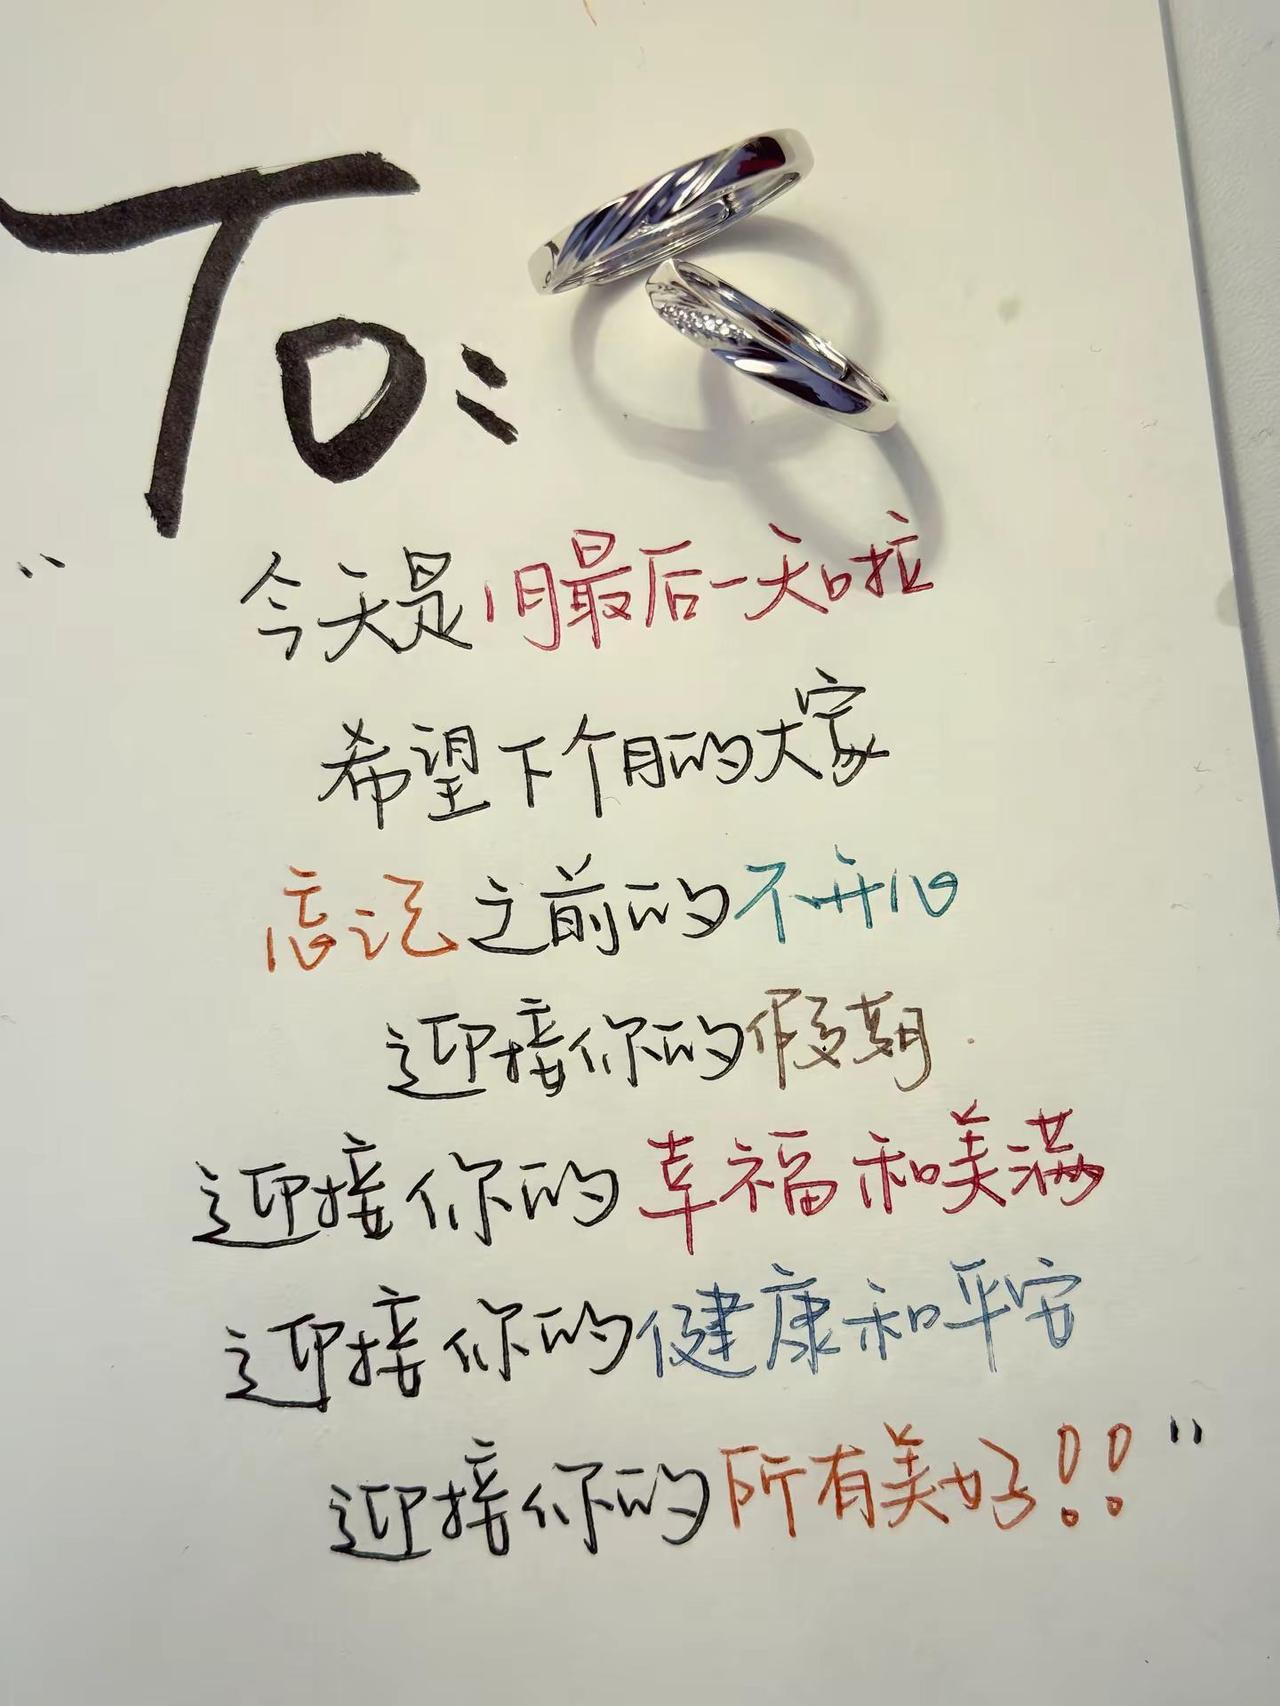 To:
“今天是1月最后一天啦
希望下个月的大家
忘记之前的不开心
迎接你的假期.
迎接你的幸福和美满
迎接你的健康和平安
迎接你的所有美好!!”